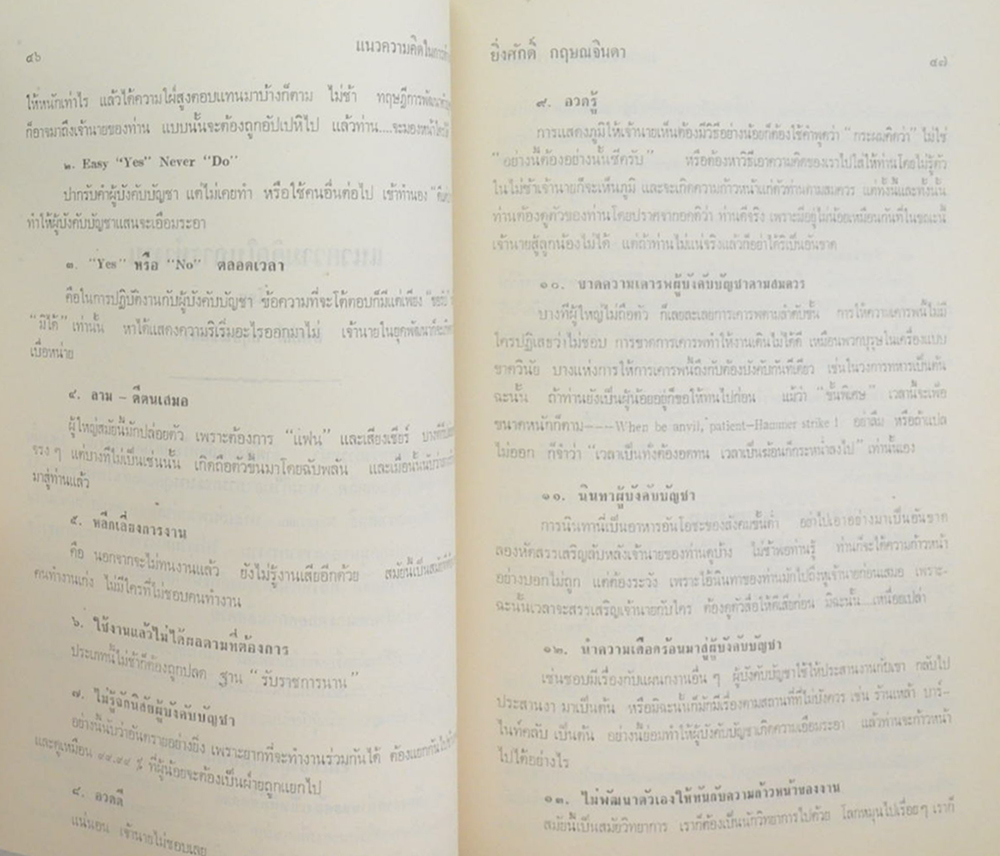 ๔๖
แนวความคิดในการทำ
ให้หนักเท่าไร แล้วได้ความใฝ่สูงตอบแทนมาบ้างก็ตาม ไม่ช้า ทฤษฎีการพัฒนา
ก็อาจมาถึงเจ้านายของท่าน แบบนั้นจะต้องถูกอัปเปหิไป แล้วท่าน....จะมองหน้า
๒. Easy "Yes" Never "Do"
ปากรับคำผู้บังคับบัญชา แต่ไม่เคยทำ หรือใช้คนอื่นต่อไป เข้าทำนอง
ทำให้ผู้บังคับบัญชาแสนจะเอือมระอา
๓. "Yes" หรือ "No" ตลอดเวลา
คือในการปฏิบัติงานกับผู้บังคับบัญชา ข้อความที่จะโต้ตอบก็มีแต่เพียง
"มิได้" เท่านั้น หาได้แสดงความริเริ่มอะไรออกมาไม่ เจ้านายในยุคพัฒนาก็จะ
เบื่อหน่าย
๔. ลาม – ตีตนเสมอ
ผู้ใหญ่สมัยนี้มักปล่อยตัว เพราะต้องการ "แฟน" และเสียงเชียร์
จริง ๆ แต่บางทีไม่เป็นเช่นนั้น เกิดถือตัวขึ้นมาโดยฉับพลัน และเมื่อนั้น
มาสู่ท่านแล้ว
๕. หลีกเลี่ยงการงาน
คือ นอกจากจะไม่ทนงานแล้ว ยังไม่รู้งานเสียอีกด้วย สมัยนี้เป็นสมัย
คนทำงานเก่ง ไม่มีใครที่ไม่ชอบคนทำงาน
๖. ใช้งานแล้วไม่ได้ผลตามที่ต้องการ
ประเภทนี้ไม่ช้าก็ต้องถูกปลด ฐาน "รับราชการนาน"
๗. ไม่รู้จักนิสัยผู้บังคับบัญชา
อย่างนี้นับว่าอันตรายอย่างยิ่ง เพราะยากที่จะทำงานร่วมกันได้ ต้องแยกกัน
และดูเหมือน ๙๙.๙๙ % ที่ผู้น้อยจะต้องเป็นฝ่ายถูกแยกไป
๘. อวดดี
แน่นอน เจ้านายไม่ชอบเลย
ยิ่งศักดิ์ กฤษณจินดา
๔๗
๙. อวดรู้
การแสดงภูมิให้เจ้านายเห็นต้องมีวิธีอย่างน้อยก็ต้องใช้คำพูดว่า "กระผมคิดว่า" ไม่ใช่
"อย่างนี้ต้องอย่างนั้นซีครับ" หรือต้องหาวิธีเอาความคิดของเราไปใส่ให้ท่านโดยไม่รู้ตัว
ในไม่ช้าเจ้านายก็จะเห็นภูมิ และจะเกิดความก้าวหน้าแก่ตัวท่านตามสมควร แต่ทั้งนี้และทั้งนั้น
ท่านต้องดูตัวของท่านโดยปราศจากอคติว่า ท่านดีจริง เพราะมีอยู่ไม่น้อยเหมือนกันที่ในขณะนี้
เจ้านายสู้ลูกน้องไม่ได้ แต่ถ้าท่านไม่แน่จริงแล้วก็อย่าได้ริเป็นอันขาด
๑๐. ขาดความเคารพผู้บังคับบัญชาตามสมควร
บางทีผู้ใหญ่ไม่ถือตัว ก็เลยละเลยการเคารพตามลำดับชั้น การให้ความเคารพนี้ไม่มี
ใครปฏิเสธว่าไม่ชอบ การขาดการเคารพทำให้งานเดินไม่ได้ดี เหมือนพวกบุรุษในเครื่องแบบ
ขาดวินัย บางแห่งการให้การเคารพนี้ถึงกับต้องบังคับกันทีเดียว เช่นในวงการทหารเป็นต้น
ฉะนั้น ถ้าท่านยังเป็นผู้น้อยอยู่ก็ขอให้ทนไปก่อน แม้ว่า "ชั้นพิเศษ" เวลานี้จะเฟ้อ
ขนาดหนักก็ตาม----When be anvil, patient-Hammer strike ! อย่าลืม หรือถ้าแปล
ไม่ออก ก็จำว่า "เวลาเป็นทั่งต้องอดทน เวลาเป็นฆ้อนก็กระหน่ำลงไป" เท่านั้นเอง
๑๑. นินทาผู้บังคับบัญชา
การนินทานี่เป็นอาหารอันโอชะของสังคมชั้นต่ำ อย่าไปเอาอย่างมาเป็นอันขาด
ลองหัดสรรเสริญลับหลังเจ้านายของท่านดูบ้าง ไม่ช้าพอท่านรู้ ท่านก็จะได้ความก้าวหน้า
อย่างบอกไม่ถูก แต่ต้องระวัง เพราะไอ้นินทาของท่านมักไปถึงหูเจ้านายก่อนเสมอ เพราะ-
ฉะนั้นเวลาจะสรรเสริญเจ้านายกับใคร ต้องดูตัวสื่อให้ดีเสียก่อน มิฉะนั้น....เหนื่อยเปล่า
๑๒. นำความเดือดร้อนมาสู่ผู้บังคับบัญชา
เช่นชอบมีเรื่องกับแผนกงานอื่น ๆ ผู้บังคับบัญชาใช้ให้ประสานงานกับเขา กลับไป
ประสานงา มาเป็นต้น หรือมิฉะนั้นก็มักมีเรื่องตามสถานที่ที่ไม่บังควร เช่น ร้านเหล้า บาร์-
ไนท์คลับ เป็นต้น อย่างนี้ย่อมทำให้ผู้บังคับบัญชาเกิดความเอือมระอา แล้วท่านจะก้าวหน้า
ไปได้อย่างไร
๑๓. ไม่พัฒนาตัวเองให้ทันกับความก้าวหน้าของงาน
สมัยนี้เป็นสมัยวิทยาการ เราก็ต้องเป็นนักวิทยาการไปด้วย โลกหมุนไปเรื่อยๆ เราก็